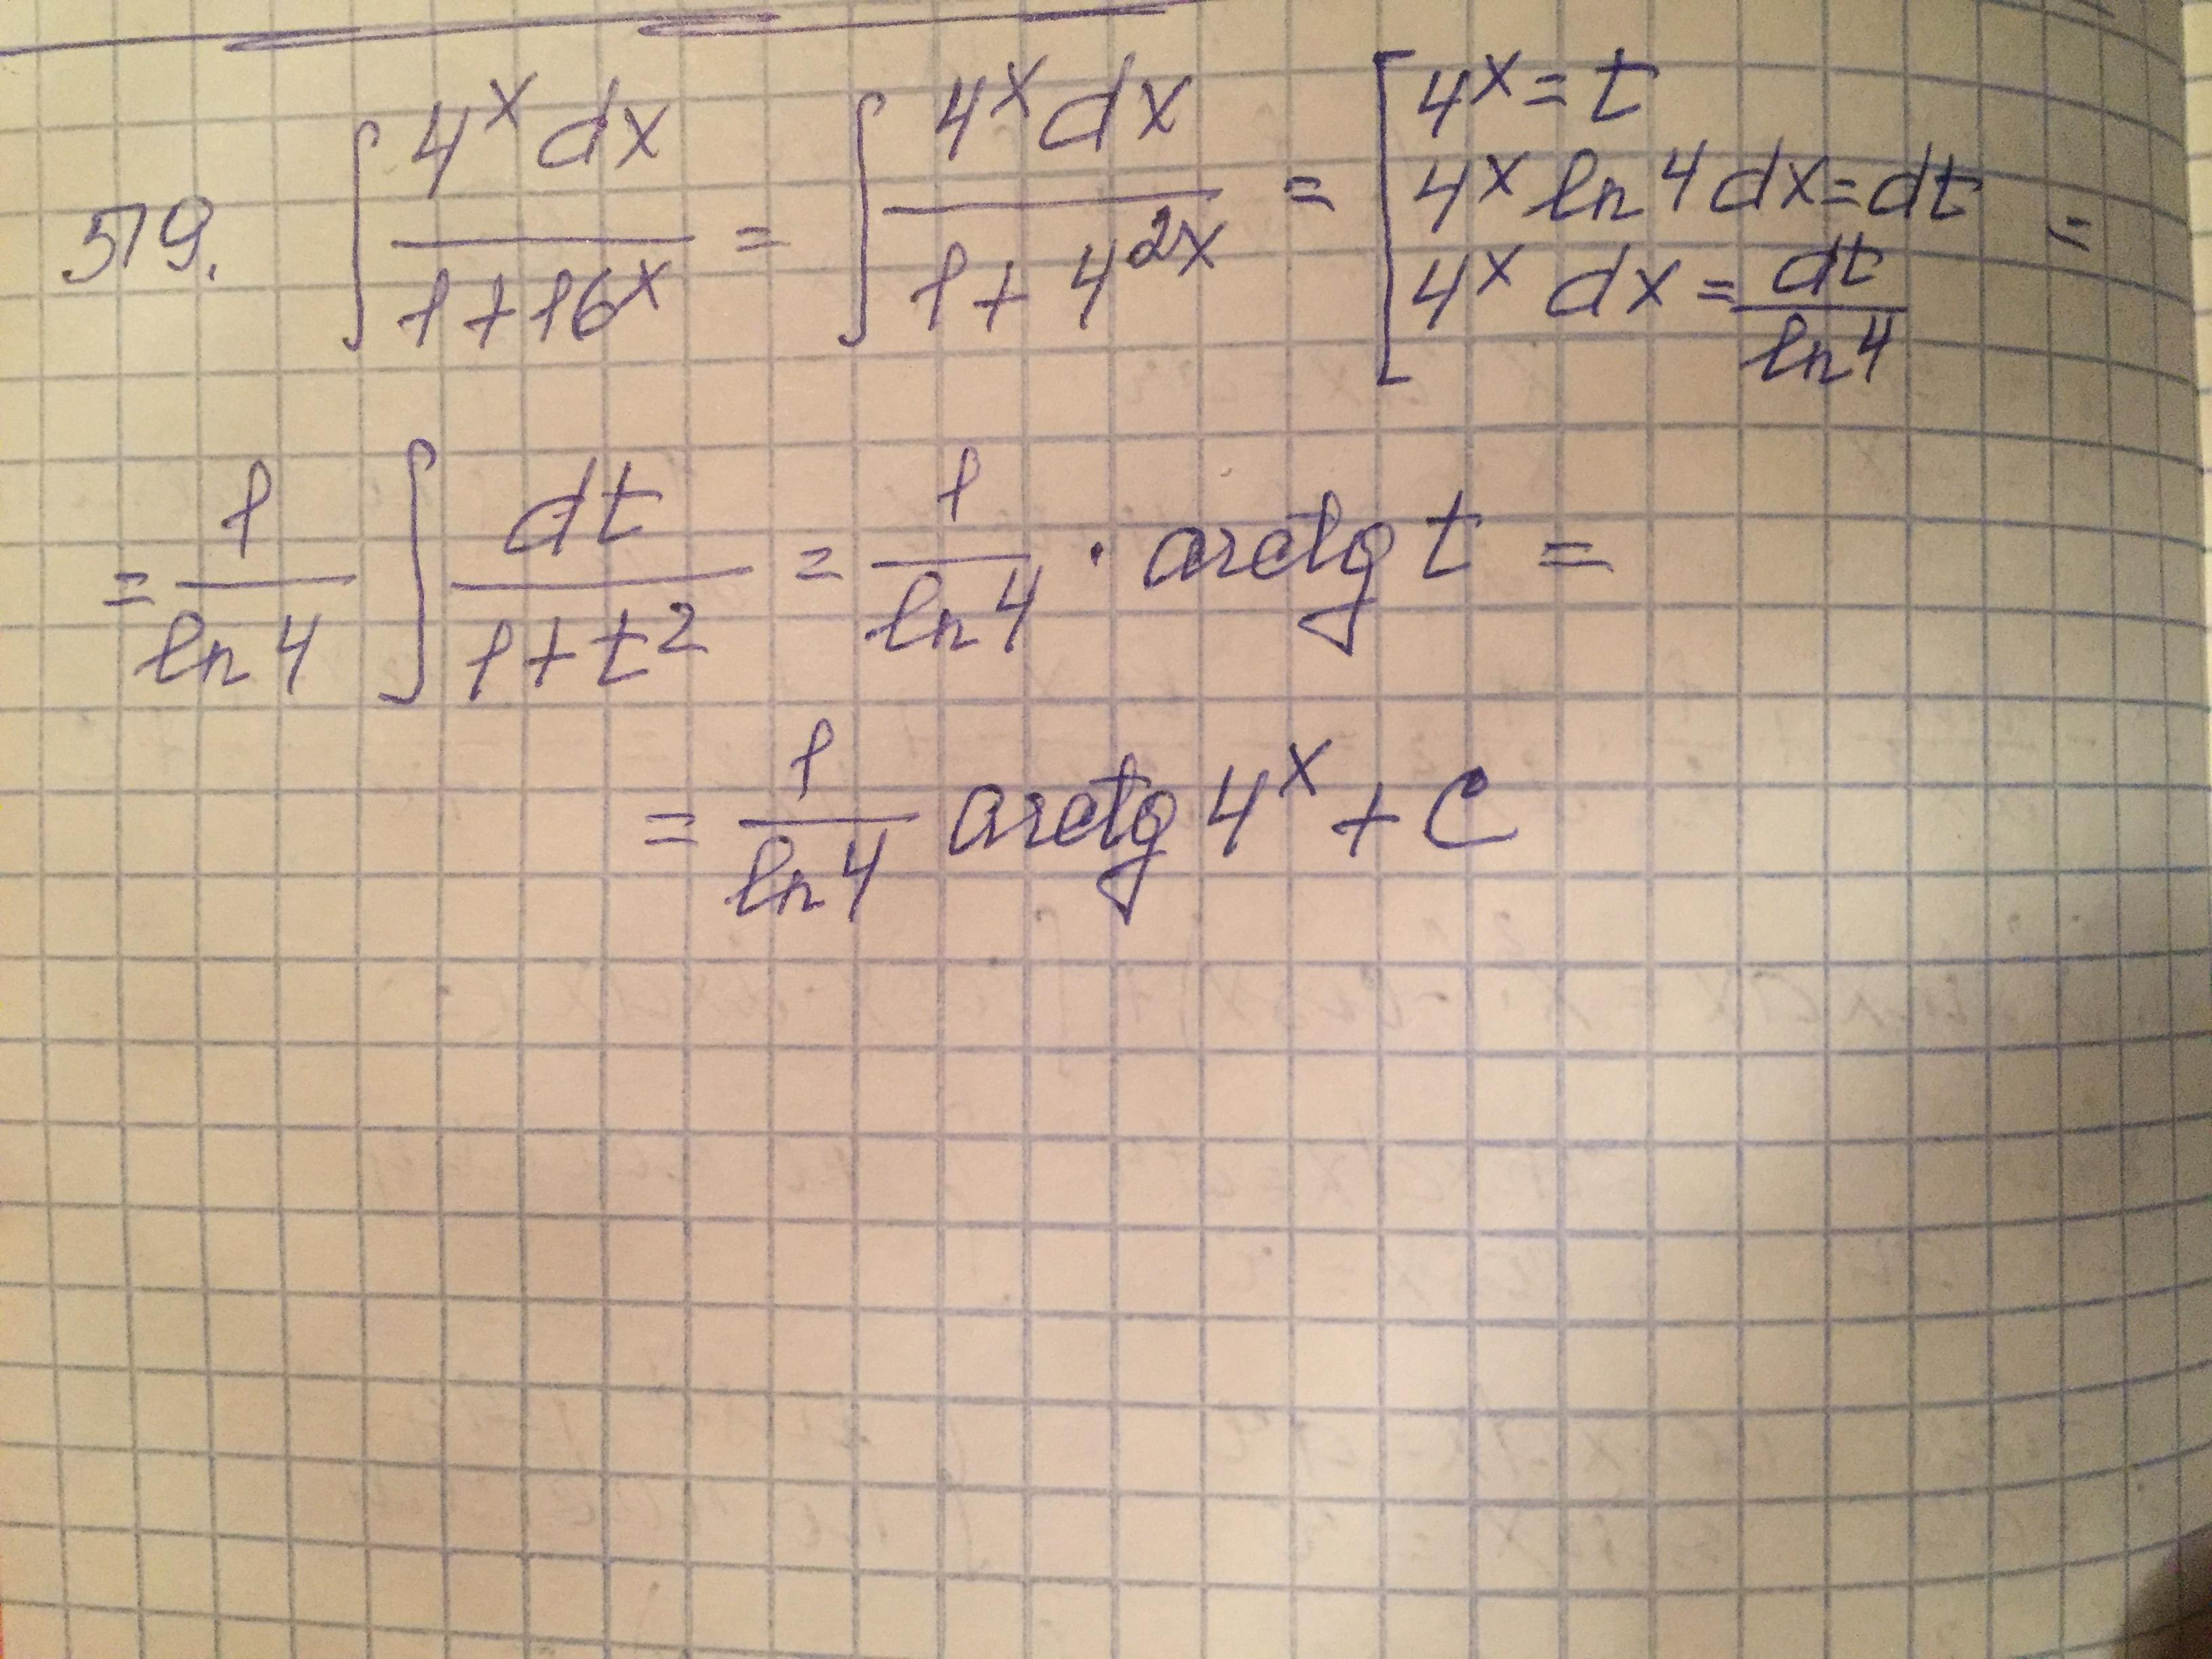 519. ∫ 4^x dx / (1+16^x) = ∫ 4^x dx / (1+4^{2x}) = [ 4^x = t
4^x ln 4 dx = dt =
4^x dx = dt / ln 4
= 1/ln 4 ∫ dt / (1+t^2) = 1/ln 4 · arctg t =
= 1/ln 4 arctg 4^x + C